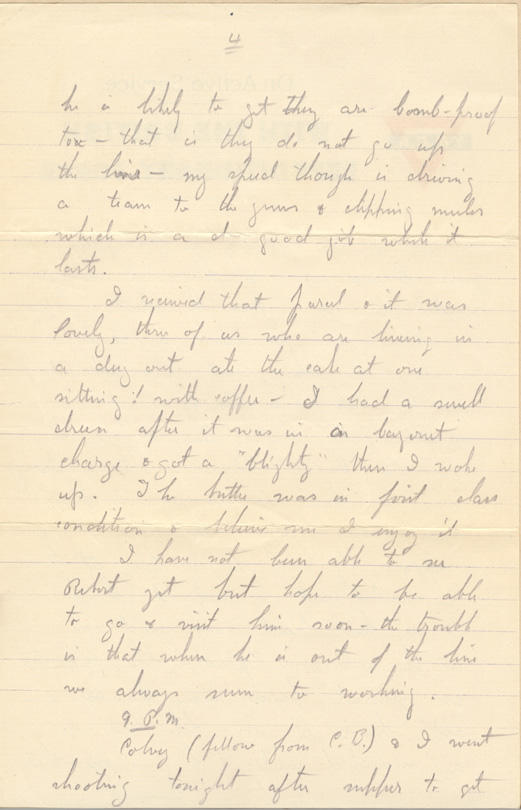 4
he a likely to get they are bomb-proof
too - that is they do not go up
the line - my spud though is driving
a team to the guns & clipping mules
which is a d - good job while it
lasts.
I received that parcel & it was
lovely, three of us who are living in
a dug out ate the cake at one
sitting! with coffee - I had a swell
dream after it was in a bayonet
charge & got a "blighty" then I woke
up. The butter was in first class
condition & believe me I enjoy it
I have not been able to see
Robert yet but hope to be able
to go & visit him soon - the trouble
is that when he is out of the line
we always seem to working.
9. P.M.
(fellow from C.B.) & I went
shooting tonight after supper to get